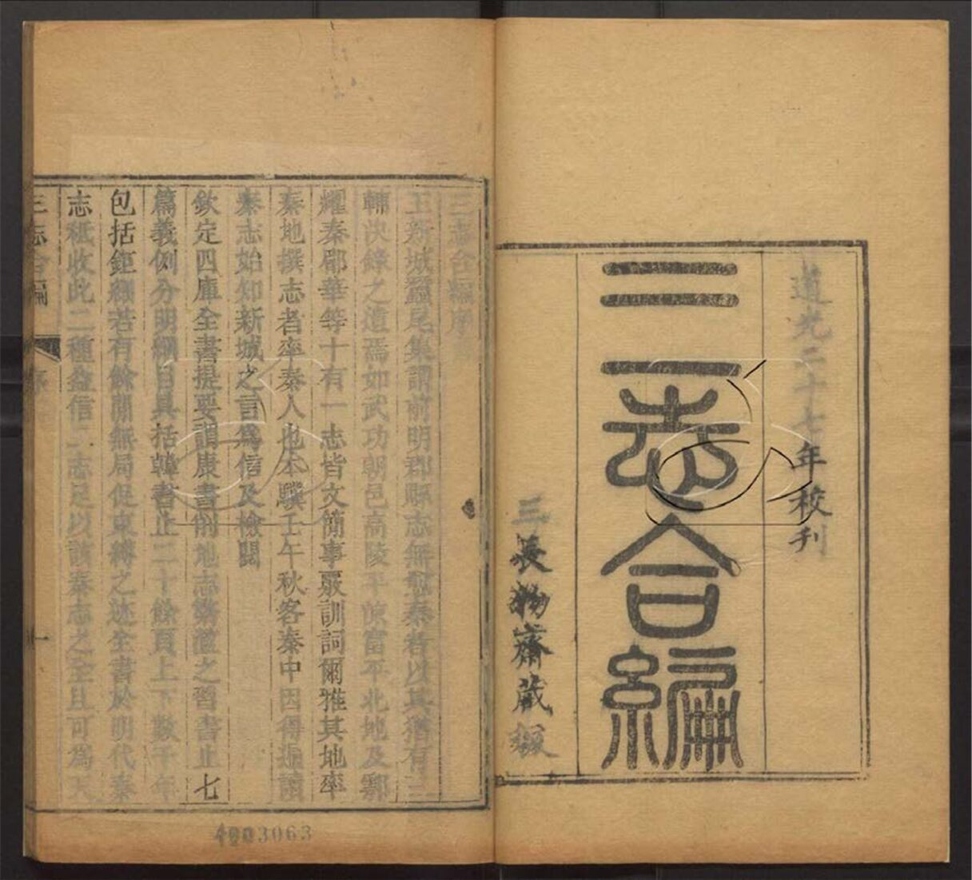 道光二十七年校刊
三志合編
三長物齋藏板
三志合編序
王新城蠶尾集謂前明郡縣志無愈秦者以其猶有三
輔決錄之遺焉如武功朝邑高陵平涼富平北地及鄠
耀秦郡華等十有一志皆文簡事覈訓詞爾雅其地率
秦地撰志者率秦人也本驥壬午秋客秦中因得遍讀
秦志始知新城之言爲信及檢閱
欽定四庫全書提要謂康書削地志繁濫之習書止七
篇義例分明綱目具括韓書止二十餘頁上下數千年
包括鉅細若有餘閒無局促束縛之迹全書於明代秦
志祗收此二種益信二志足以該秦志之全且可爲天
三志合編
序
一
4003063